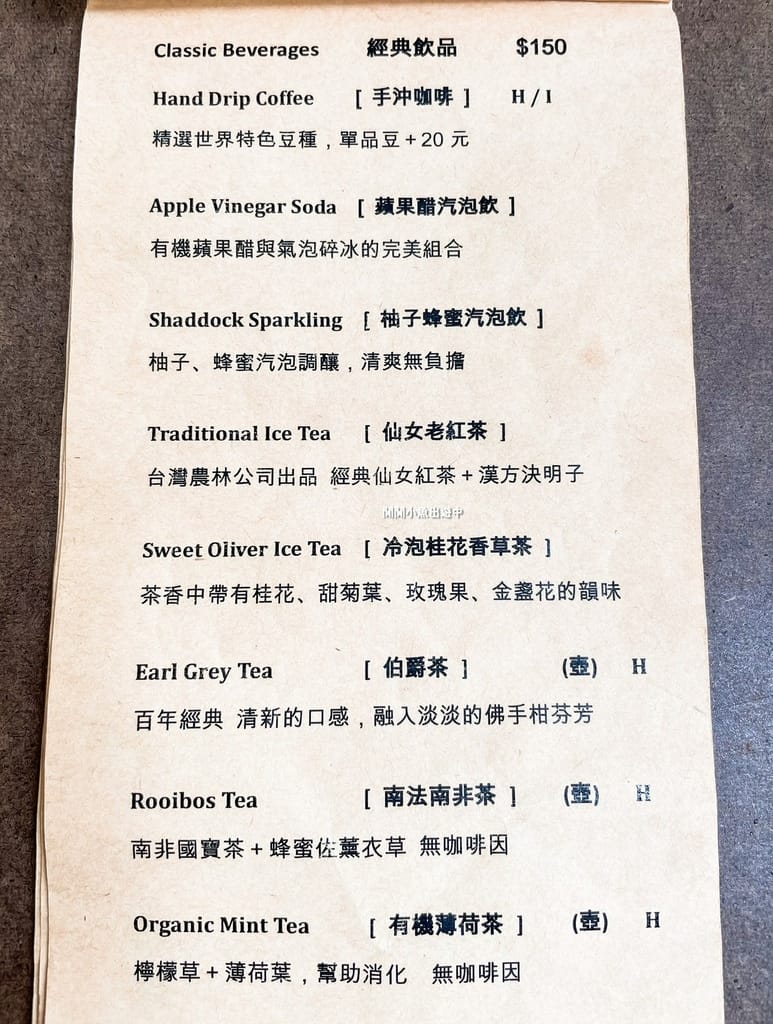 Classic Beverages 經典飲品 $150
Hand Drip Coffee [ 手沖咖啡 ] H / I
精選世界特色豆種，單品豆＋20 元
Apple Vinegar Soda [ 蘋果醋汽泡飲 ]
有機蘋果醋與氣泡碎冰的完美組合
Shaddock Sparkling [ 柚子蜂蜜汽泡飲 ]
柚子、蜂蜜汽泡調釀，清爽無負擔
Traditional Ice Tea [ 仙女老紅茶 ]
台灣農林公司出品 經典仙女紅茶＋漢方決明子
小魚出遊中
Sweet Oliver Ice Tea [ 冷泡桂花香草茶 ]
茶香中帶有桂花、甜菊葉、玫瑰果、金盞花的韻味
Earl Grey Tea [ 伯爵茶 ] (壺) H
百年經典 清新的口感，融入淡淡的佛手柑芬芳
Rooibos Tea [ 南法南非茶 ] (壺) H
南非國寶茶＋蜂蜜佐薰衣草 無咖啡因
Organic Mint Tea [ 有機薄荷茶 ] (壺) H
檸檬草＋薄荷葉，幫助消化 無咖啡因